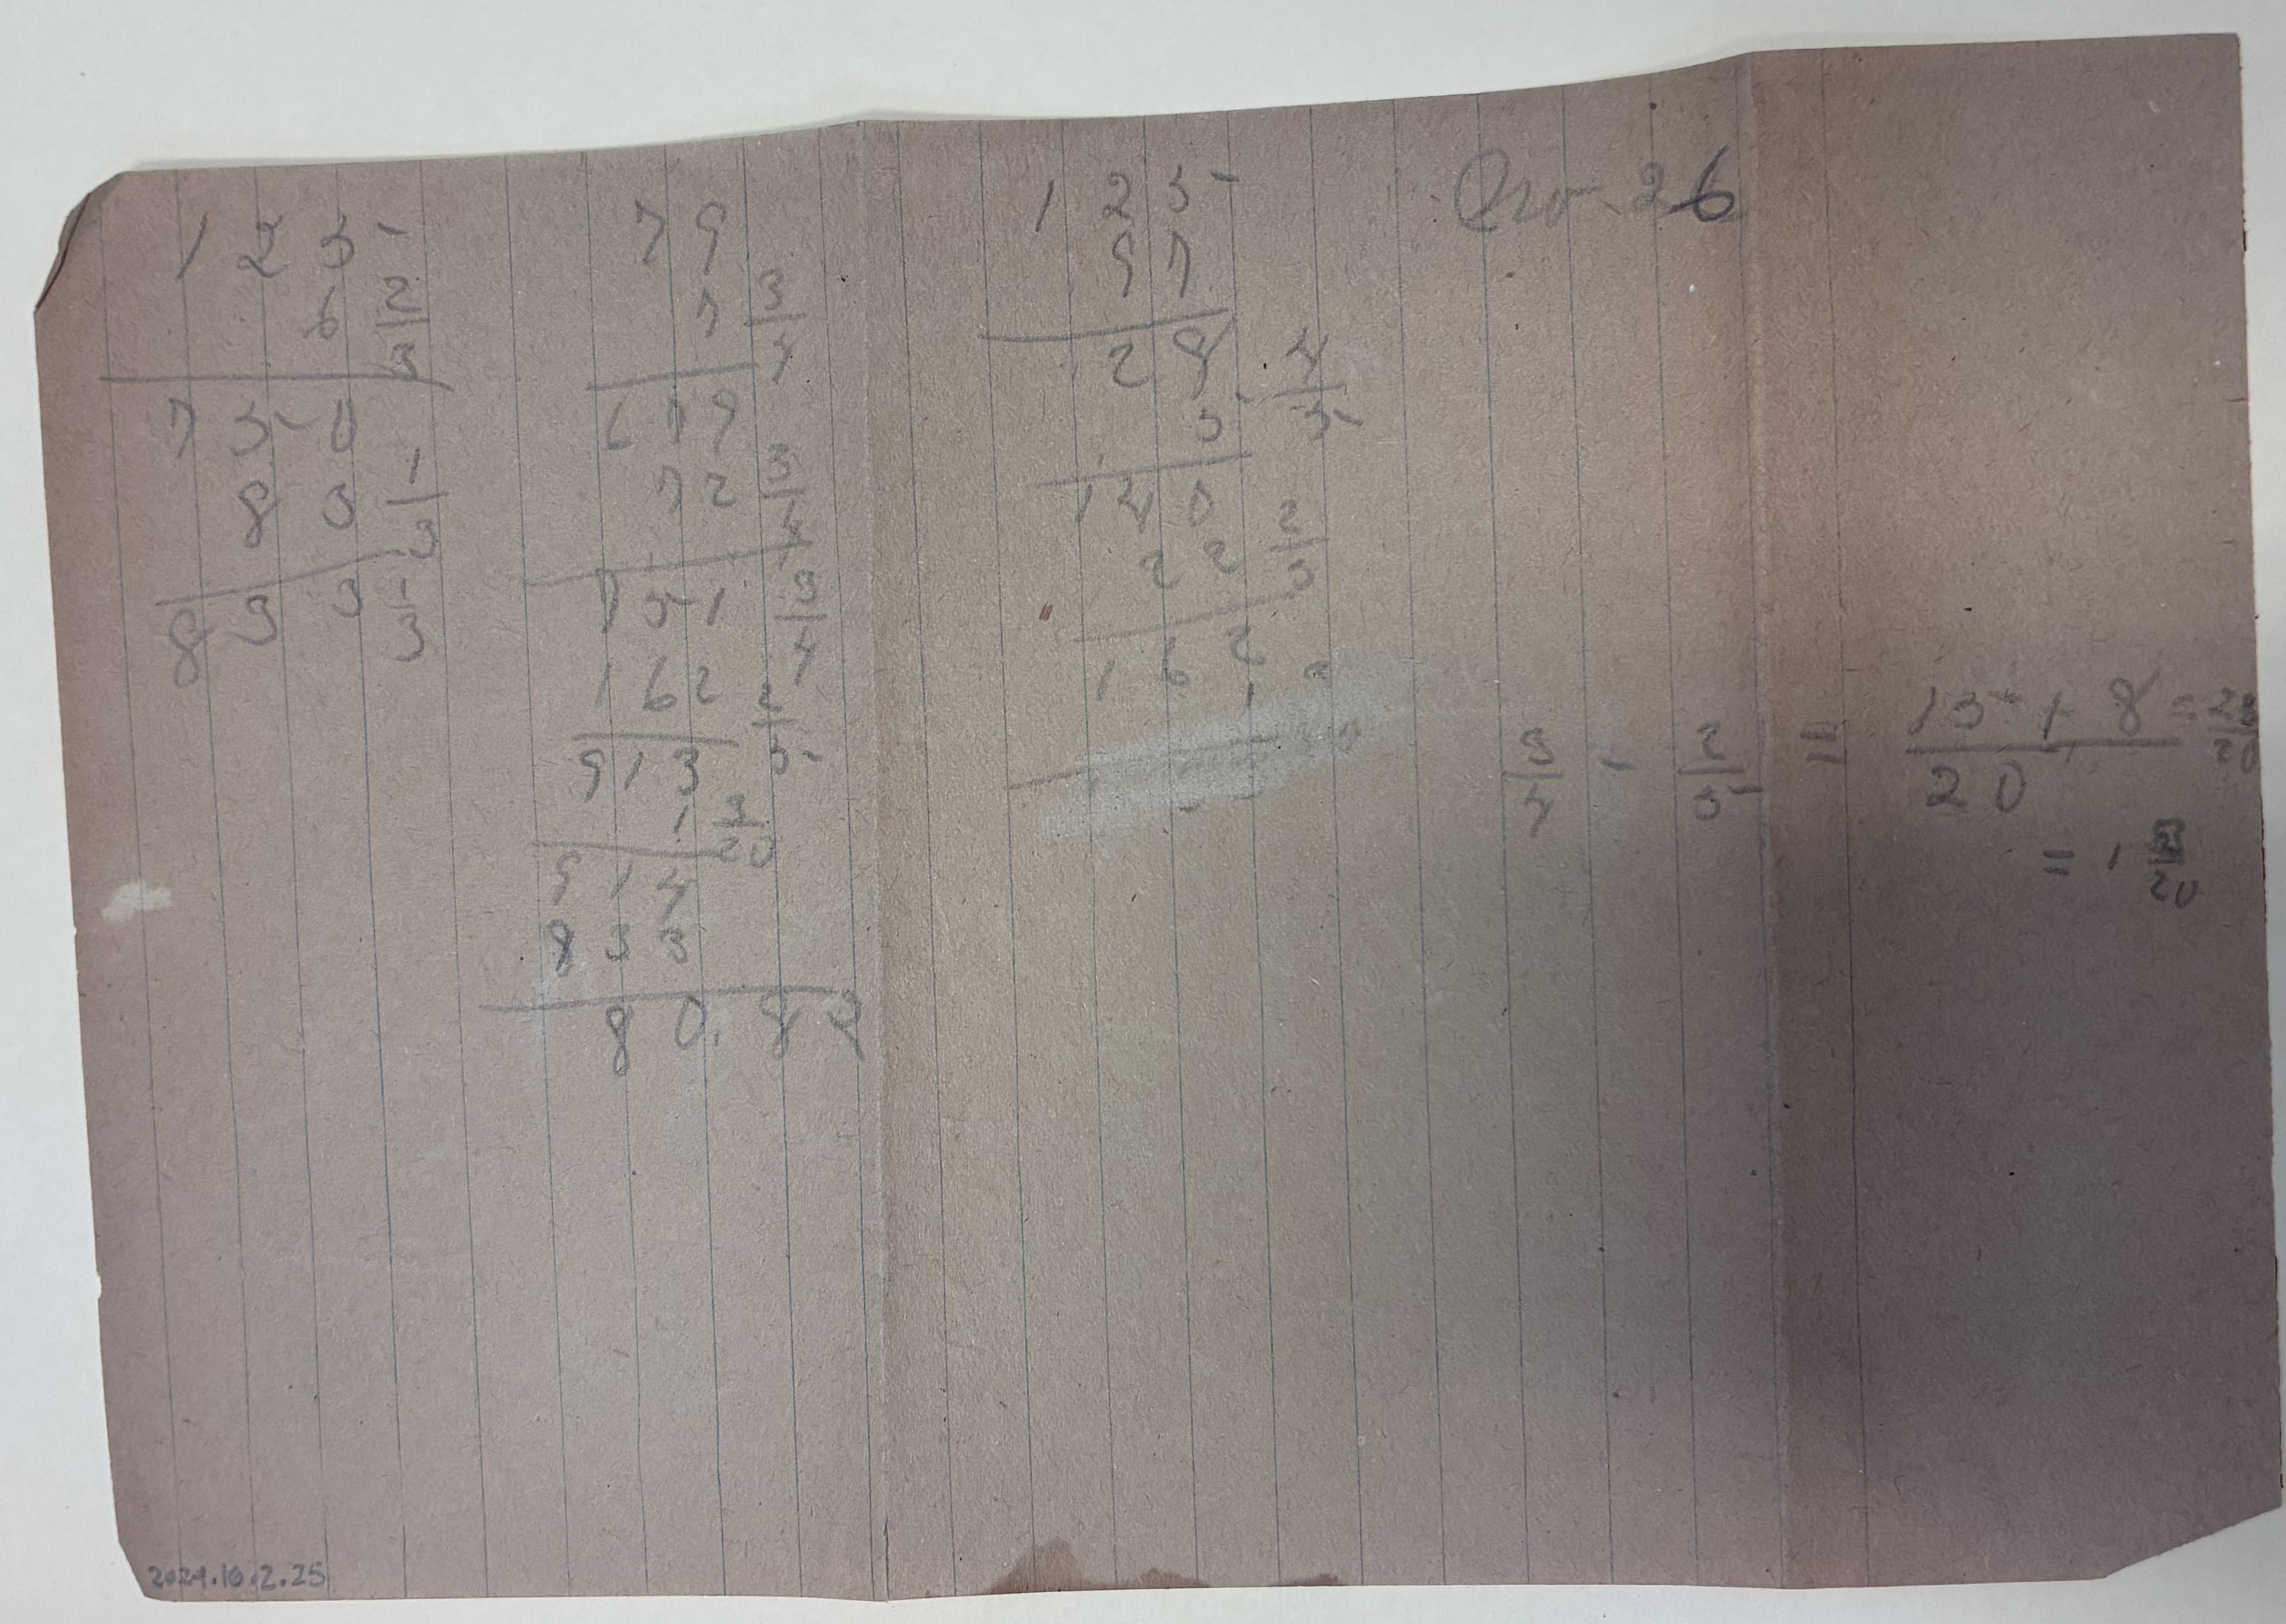 125
6 2/3
750
83 1/3
833 1/3
79
7 3/4
679
72 3/4
751 3/4
162 2/5
913
1 3/20
914
833
80.82
125
97
28
5 4/5
140
22 2/5
162
26
3/4 - 2/5 = 15+8/20 = 23/20
= 1 3/20
2024.10.2.25